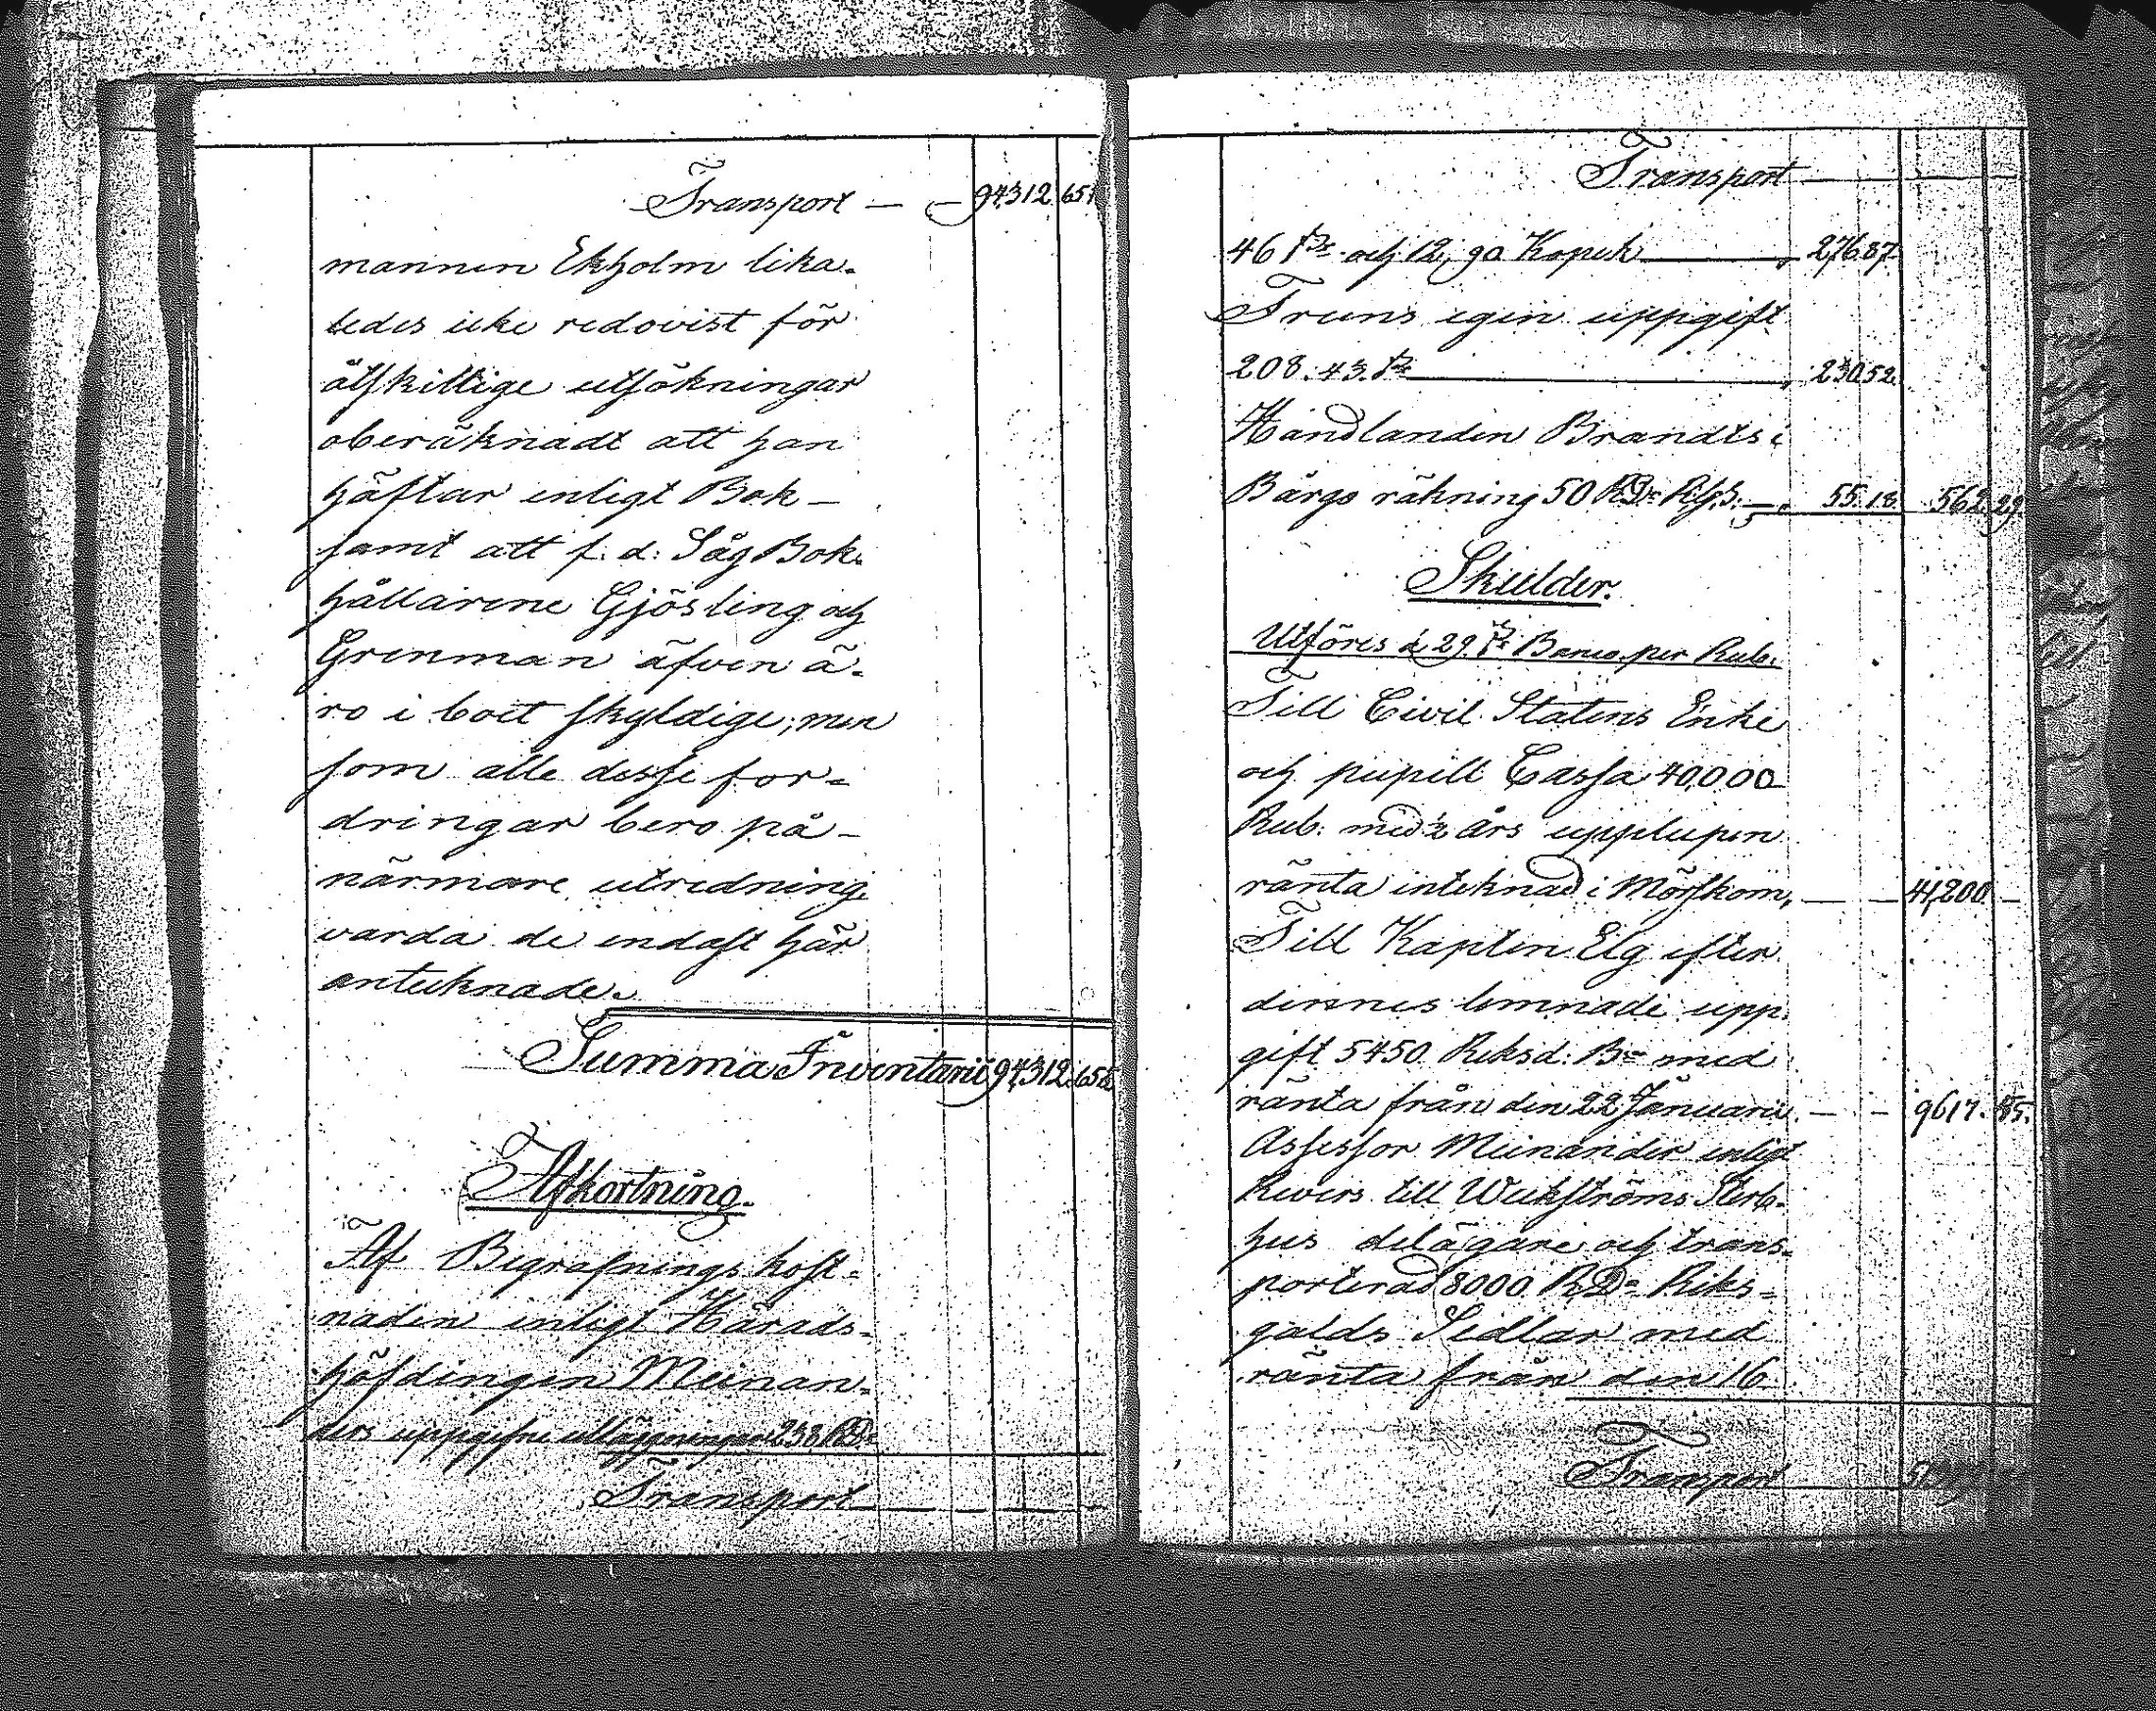 Transport — — 94312 65½
mannen Ekholm lika-
ledes icke redovist för
åtskillige utsökningar
oberäknadt att han
häftar enligt Bok-
samt att f. d. Såg Bok-
hållarene Gjösling och
Grenman äfven ä-
ro i boet skyldige; men
som alle desse for-
dringar bero på-
närmare utredning
varda de endast här
antecknade.
Summa Inventarii 94312. 65½
Afkortning.
Af Begrafnings kost-
naden enligt Härads-
höfdingen Meinan-
ders uppgifne utläggningar 258 RD:
Transport
Transport
46 s: och 12, 90 Kopek 276.87
Fruns egen uppgift
208. 43. s: 230.52
Handlanden Brandts i
Bårgo räkning 50 RD: Rifs: 55.18 562.29
Skulder.
Utföres à 29 s: Banco per Rub:
Till Civil Statens Enke
och pupill Cassa 40,000
Rub: med ½ års upplupen
ränta inteknad i Mörskom, — — 41,200 —
Till Kapten Elg efter
dennes lemnade upp-
gift 5450 Riksd: B:co med
ränta från den 22 Januarii — — 9617. 85.
Assessor Meinander enligt
Revers till Weckströms Sterb-
hus delägare och trans-
porterad 8000 RD: Riks-
gälds Sedlar med
ränta från den 16
Transport